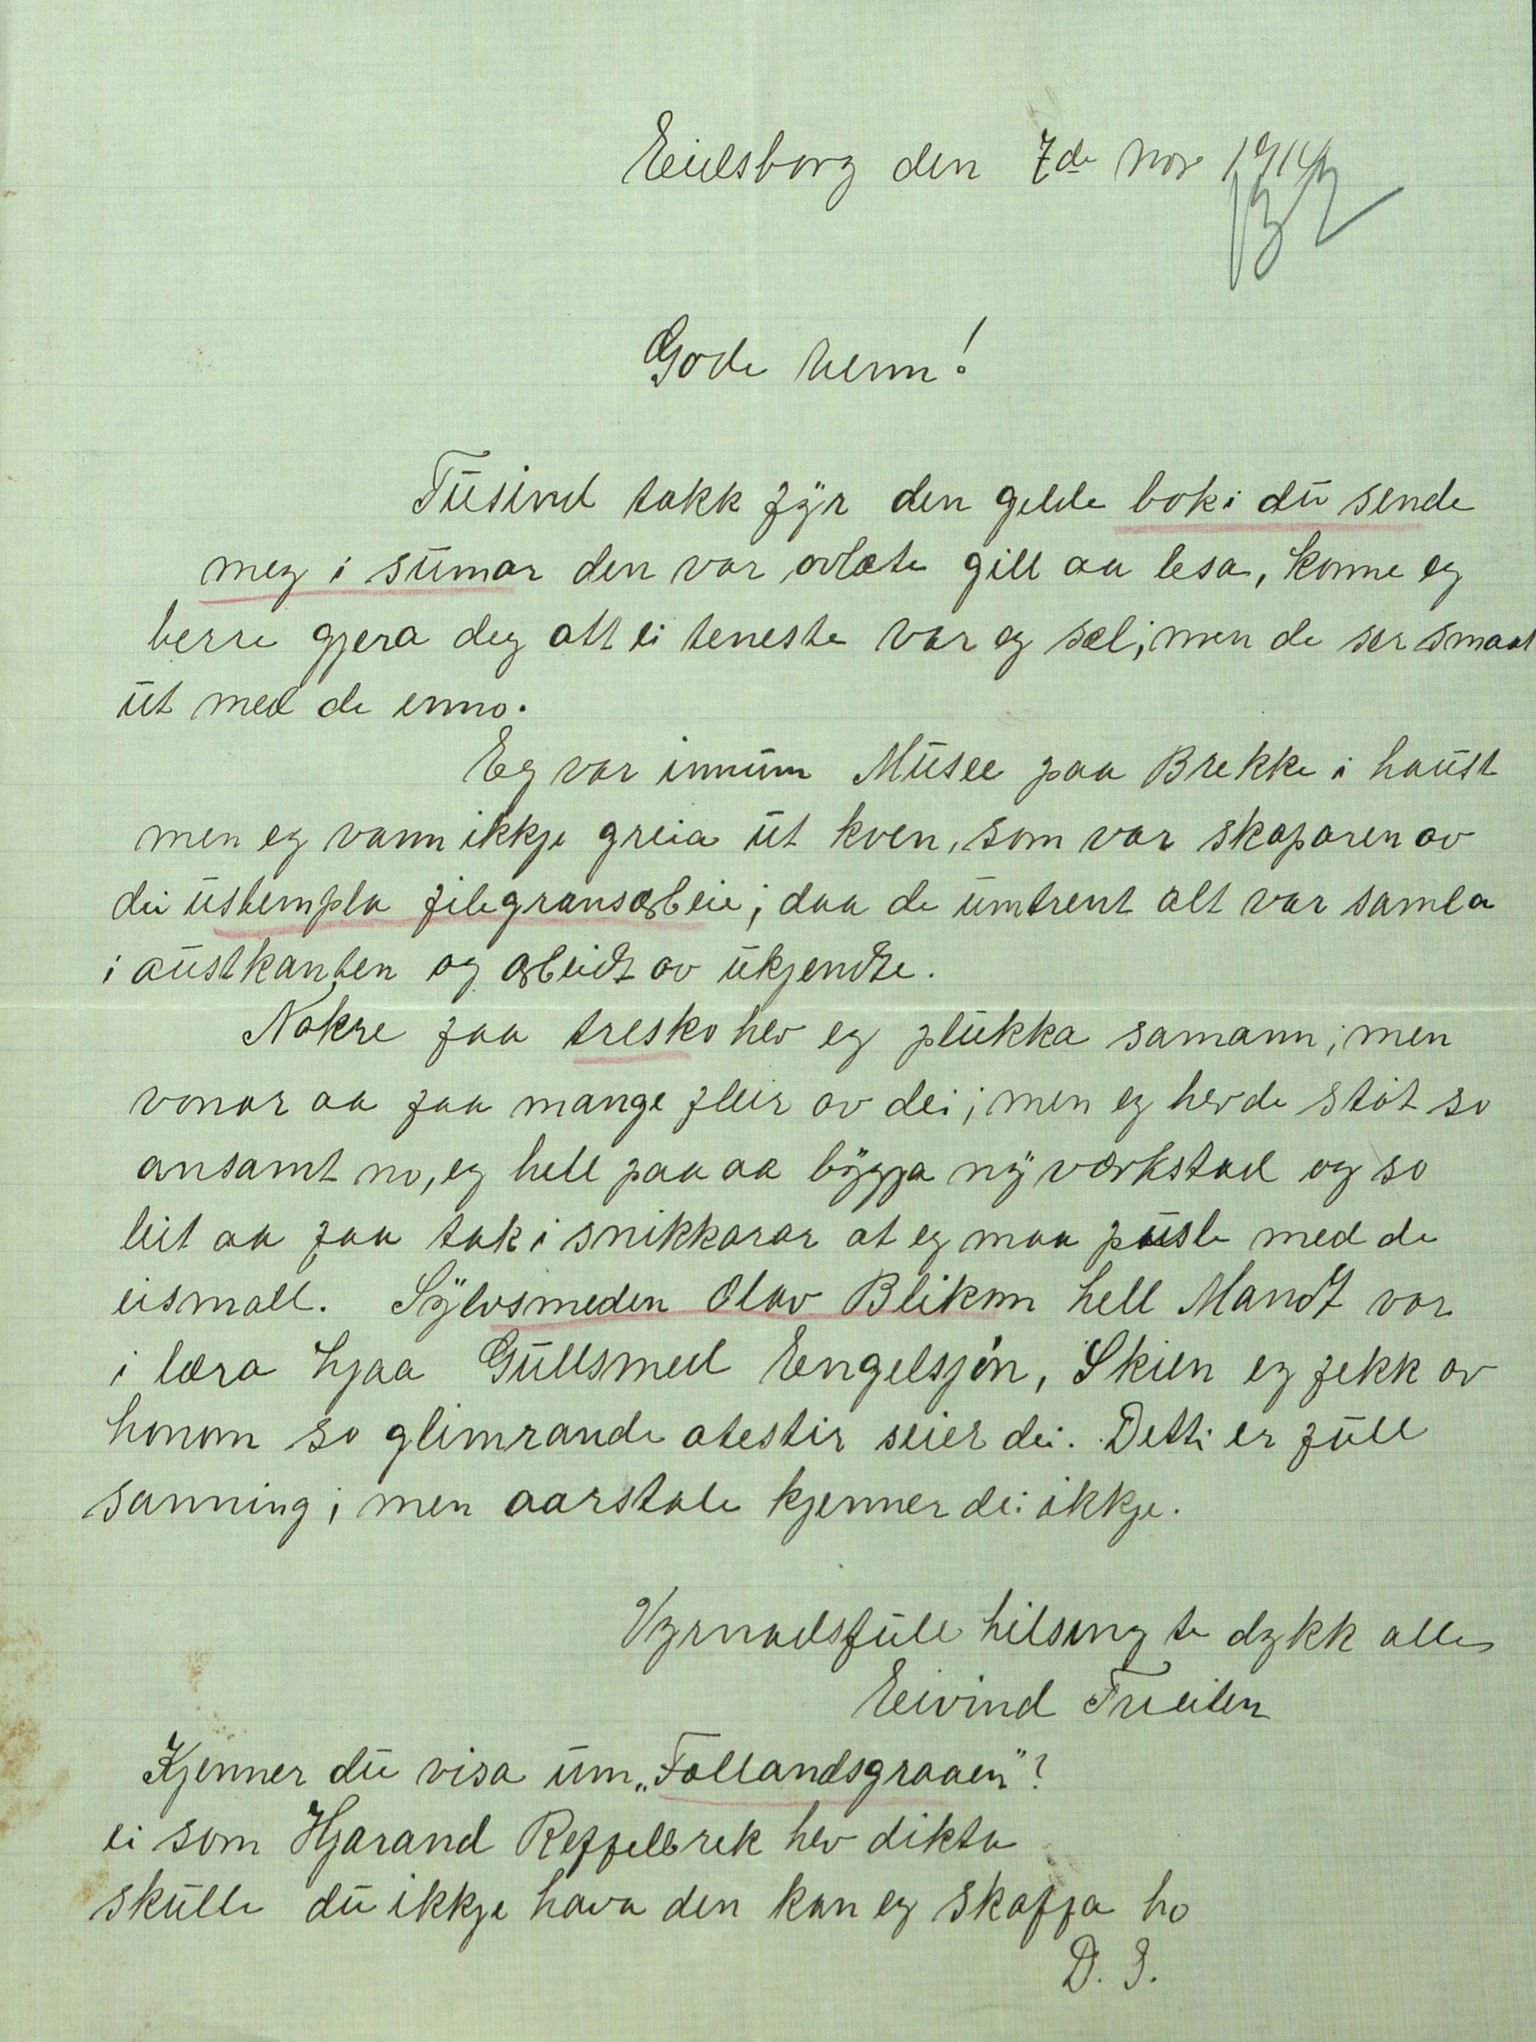 Eidsborg den 7de Nov 1914
Gode venn!
Tusind takk fyr den gilde boki du sende
meg i sumar den var ovlæte gill aa lesa, konne eg
berre gjera deg att ei teneste var eg sæl; men de ser smaat
ut med de enno.
Eg var innum Musee paa Brekke i haust
men eg vann ikkje greia ut kven, som var skaparen av
dei ustempla filegransarbeie; daa de umtrent alt var samla
i austkanten og arbeidt av ukjendte.
Nokre faa tresko hev eg plukka samann; men
vonar aa faa mange fleir av dei; men eg hevde støt so
ansamt no, eg hell paa aa bygga ny værkstad og so
leit aa faa tak i snikkarar at eg maa pusle med de
eismall. Sylvsmeden Olav Blikom hell Mandt var
i læra hjaa Gullsmed Engelsjøn, Skien eg fekk av
honom so glimrande atestir seier dei. Detti er full
sanning; men aarstale kjenner dei ikkje.
Vyrnadsfull hilsing te dykk alle
Eivind Traiten
Kjenner du visa um „Follandsgraaen"?
ei som Hjarand Reffelbrek hev dikta
skulle du ikkje hava den kan eg skaffa ho
D. S.